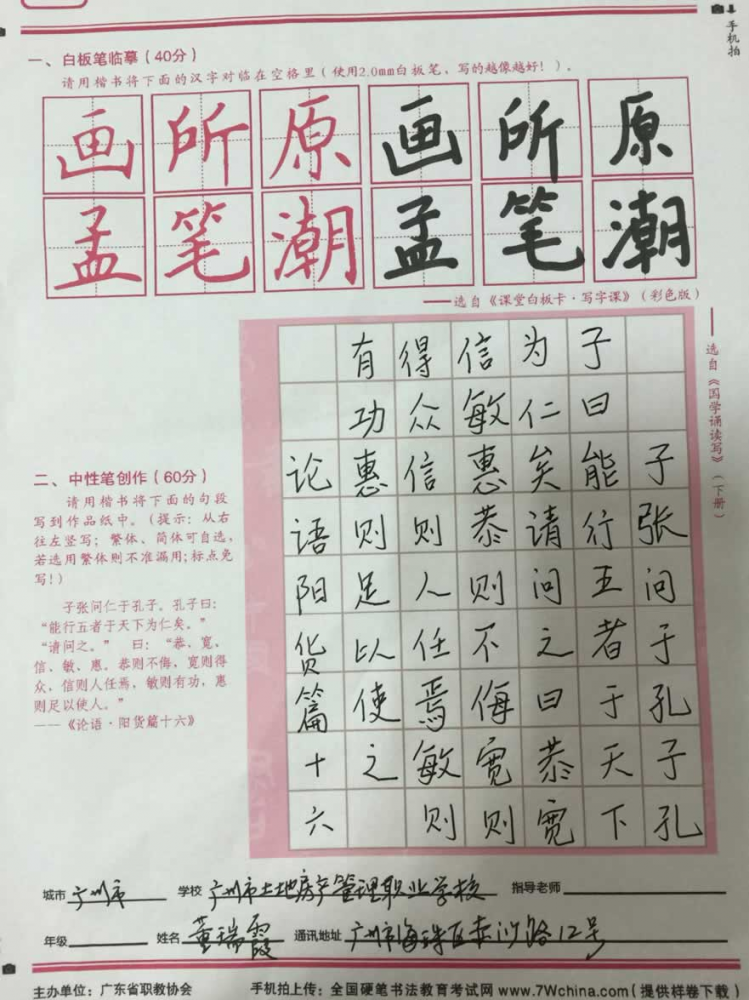 手机拍
一、白板笔临摹（40分）
请用楷书将下面的汉字对临在空格里（使用2.0mm白板笔，写的越像越好！）。
画所原画所原
孟笔潮孟笔潮
——选自《课堂白板卡·写字课》（彩色版）
——选自《国学诵读写》（下册）
二、中性笔创作（60分）
请用楷书将下面的句段
写到作品纸中。（提示：从右
往左竖写；繁体、简体可自选，
若选用繁体则不准漏用；标点免
写！）
子张问仁于孔子。孔子曰：
“能行五者于天下为仁矣。”
“请问之。” 曰：“恭、宽、
信、敏、惠。恭则不侮，宽则得
众，信则人任焉，敏则有功，惠
则足以使人。”
——《论语·阳货篇十六》
子张问于孔子孔
子曰能行五者于天下
为仁矣请问之曰恭宽
信敏惠恭则不侮宽则
得众信则人任焉敏则
有功惠则足以使之
论语阳货篇十六
城市 广州市 学校 广州市土地房产管理职业学校 指导老师
年级 姓名 董瑞霞 通讯地址 广州市海珠区赤沙路12号
主办单位：广东省职教协会 手机拍上传：全国硬笔书法教育考试网 www.7Wchina.com（提供样卷下载）